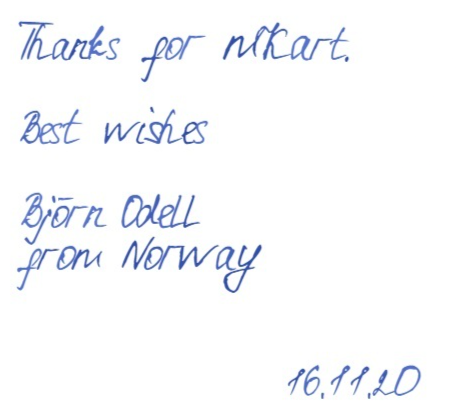 Thanks for nlKart.
Best wishes
Björn Odell
from Norway
16.11.20